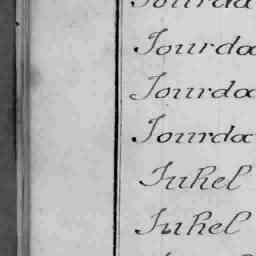 Jourda
Jourda
Jourda
Jourda
Juhel
Juhel